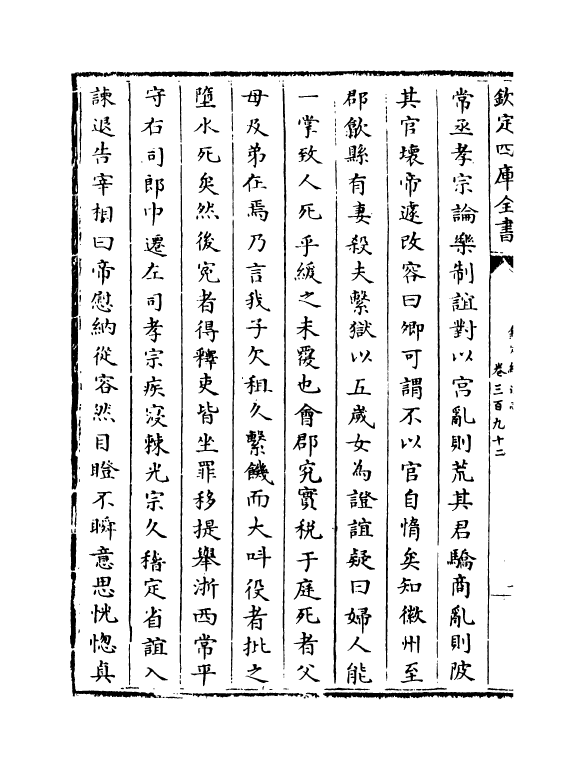 欽定四庫全書
卷三百九十二
常丞孝宗論樂制誼對以宮亂則荒其君驕商亂則陂
其官壞帝遽改容曰卿可謂不以官自惰矣知徽州至
郡歙縣有妻殺夫繫獄以五歲女為證誼疑曰婦人能
一掌致人死乎緩之未覆也會郡究實税于庭死者父
母及弟在焉乃言我子欠租久繫饑而大呌役者批之
墮水死矣然後寃者得釋吏皆坐罪移提舉浙西常平
守右司郎中遷左司孝宗疾寖棘光宗久稽定省誼入
諫退告宰相曰帝慰納從容然目瞪不瞬意思恍惚真